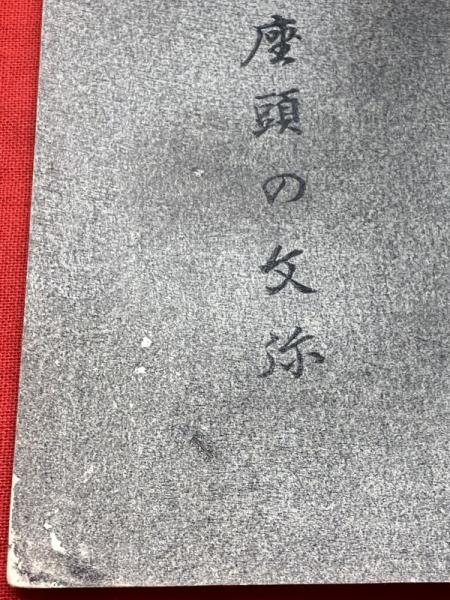 座頭の文弥